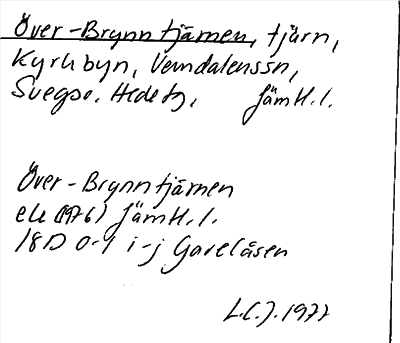 Över-Brynntjärnen, tjärn,
Kyrkbyn, Vemdalenssn,
Svegs o. Hede tg, Jämtl. l.
Över-Brynntjärnen
ek (1976) Jämtl. l.
18D 0-1 i-j Gåveåsen
L.C.J. 1977